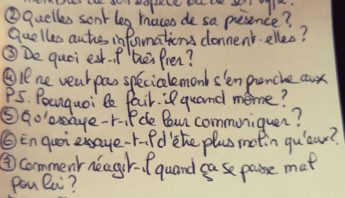 membres de son espèce ou de son type.
② Quelles sont les traces de sa présence?
Quelles autres informations donnent-elles?
③ De quoi est-il très fier?
④ Il ne veut pas spécialement s'en prendre aux
PJ. Pourquoi le fait-il quand même?
⑤ Qu'essaye-t-il de leur communiquer?
⑥ En quoi essaye-t-il d'être plus malin qu'eux?
⑦ Comment réagit-il quand ça se passe mal
pour lui?